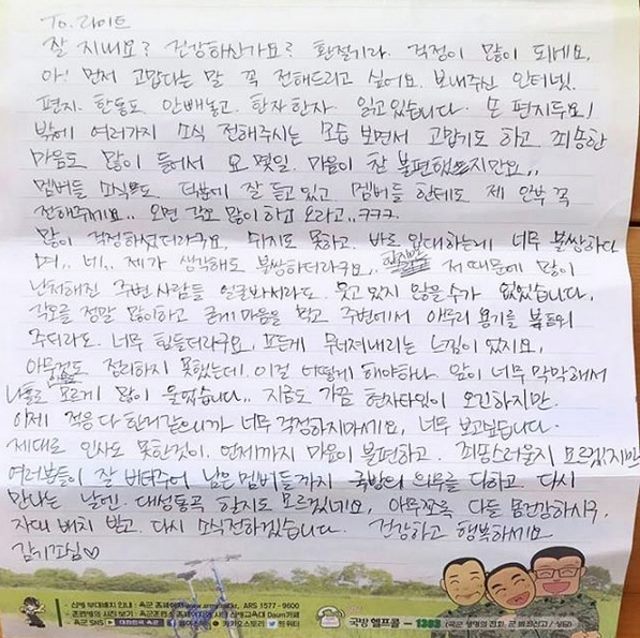 To. 라이트
잘 지내요? 건강하신가요? 환절기라. 걱정이 많이 되네요.
아! 먼저 고맙다는 말 꼭 전해드리고 싶어요. 보내주신 인터넷.
편지. 한통도 안빼놓고. 한자한자. 읽고있습니다. 손 편지두요!
밖에 여러가지 소식 전해주시는 모습 보면서 고맙기도 하고. 죄송한
마음도 많이 들어서 요 몇일. 마음이 참 불편했었지만요..
멤버들 소식도 덕분에 잘 듣고 있고. 멤버들 한테도 제 안부 꼭
전해주세요.. 오면 각오 많이 하고 오라고..ㅋㅋㅋ.
많이 걱정하셨더라구요. 쉬지도 못하고. 바로 입대하는게 너무 불쌍하다
며.. 네.. 제가 생각해도 불쌍하더라구요.. 저 때문에 많이
난처해진 주변 사람들 얼굴봐서라도. 웃고 있지 않을수가 없었습니다.
각오를 정말 많이하고 굳게 마음을 먹고 주변에서 아무리 용기를 북돋아
주더라도. 너무 힘들더라구요. 모든게 무너져내리는 느낌이 있지요.
아무것도 정리하지 못했는데. 이걸 어떻게 해야하나. 앞이 너무 막막해서
나도 모르게 많이 울었습니다.. 지금도 가끔 현자타임이 오긴하지만.
이제 적응 다 한거같으니까 너무 걱정하지마세요. 너무 보고싶습니다.
제대로 인사도 못한것이. 언제까지 마음이 불편하고. 죄송스러울지 모르겠지만
여러분들이 잘 버텨주어 남은 멤버들까지 국방의 의무를 다하고 다시
만나는 날엔. 대성통곡 할지도 모르겠네요. 아무쪼록 다들 몸건강하시구.
자대 배치 받고. 다시 소식전하겠습니다. 건강하고 행복하세요
감기조심♡
신병 부대배치 안내 : 육군 홈페이지 ARS 1577-9600
훈련병의 사진 보기 : 육군훈련소 홈페이지 Daum카페
육군 SNS 대한민국 육군 페이스북 카카오스토리 트위터
국방헬프콜 - 1303 (국군 생명의 전화, 군 범죄신고 / 상담)